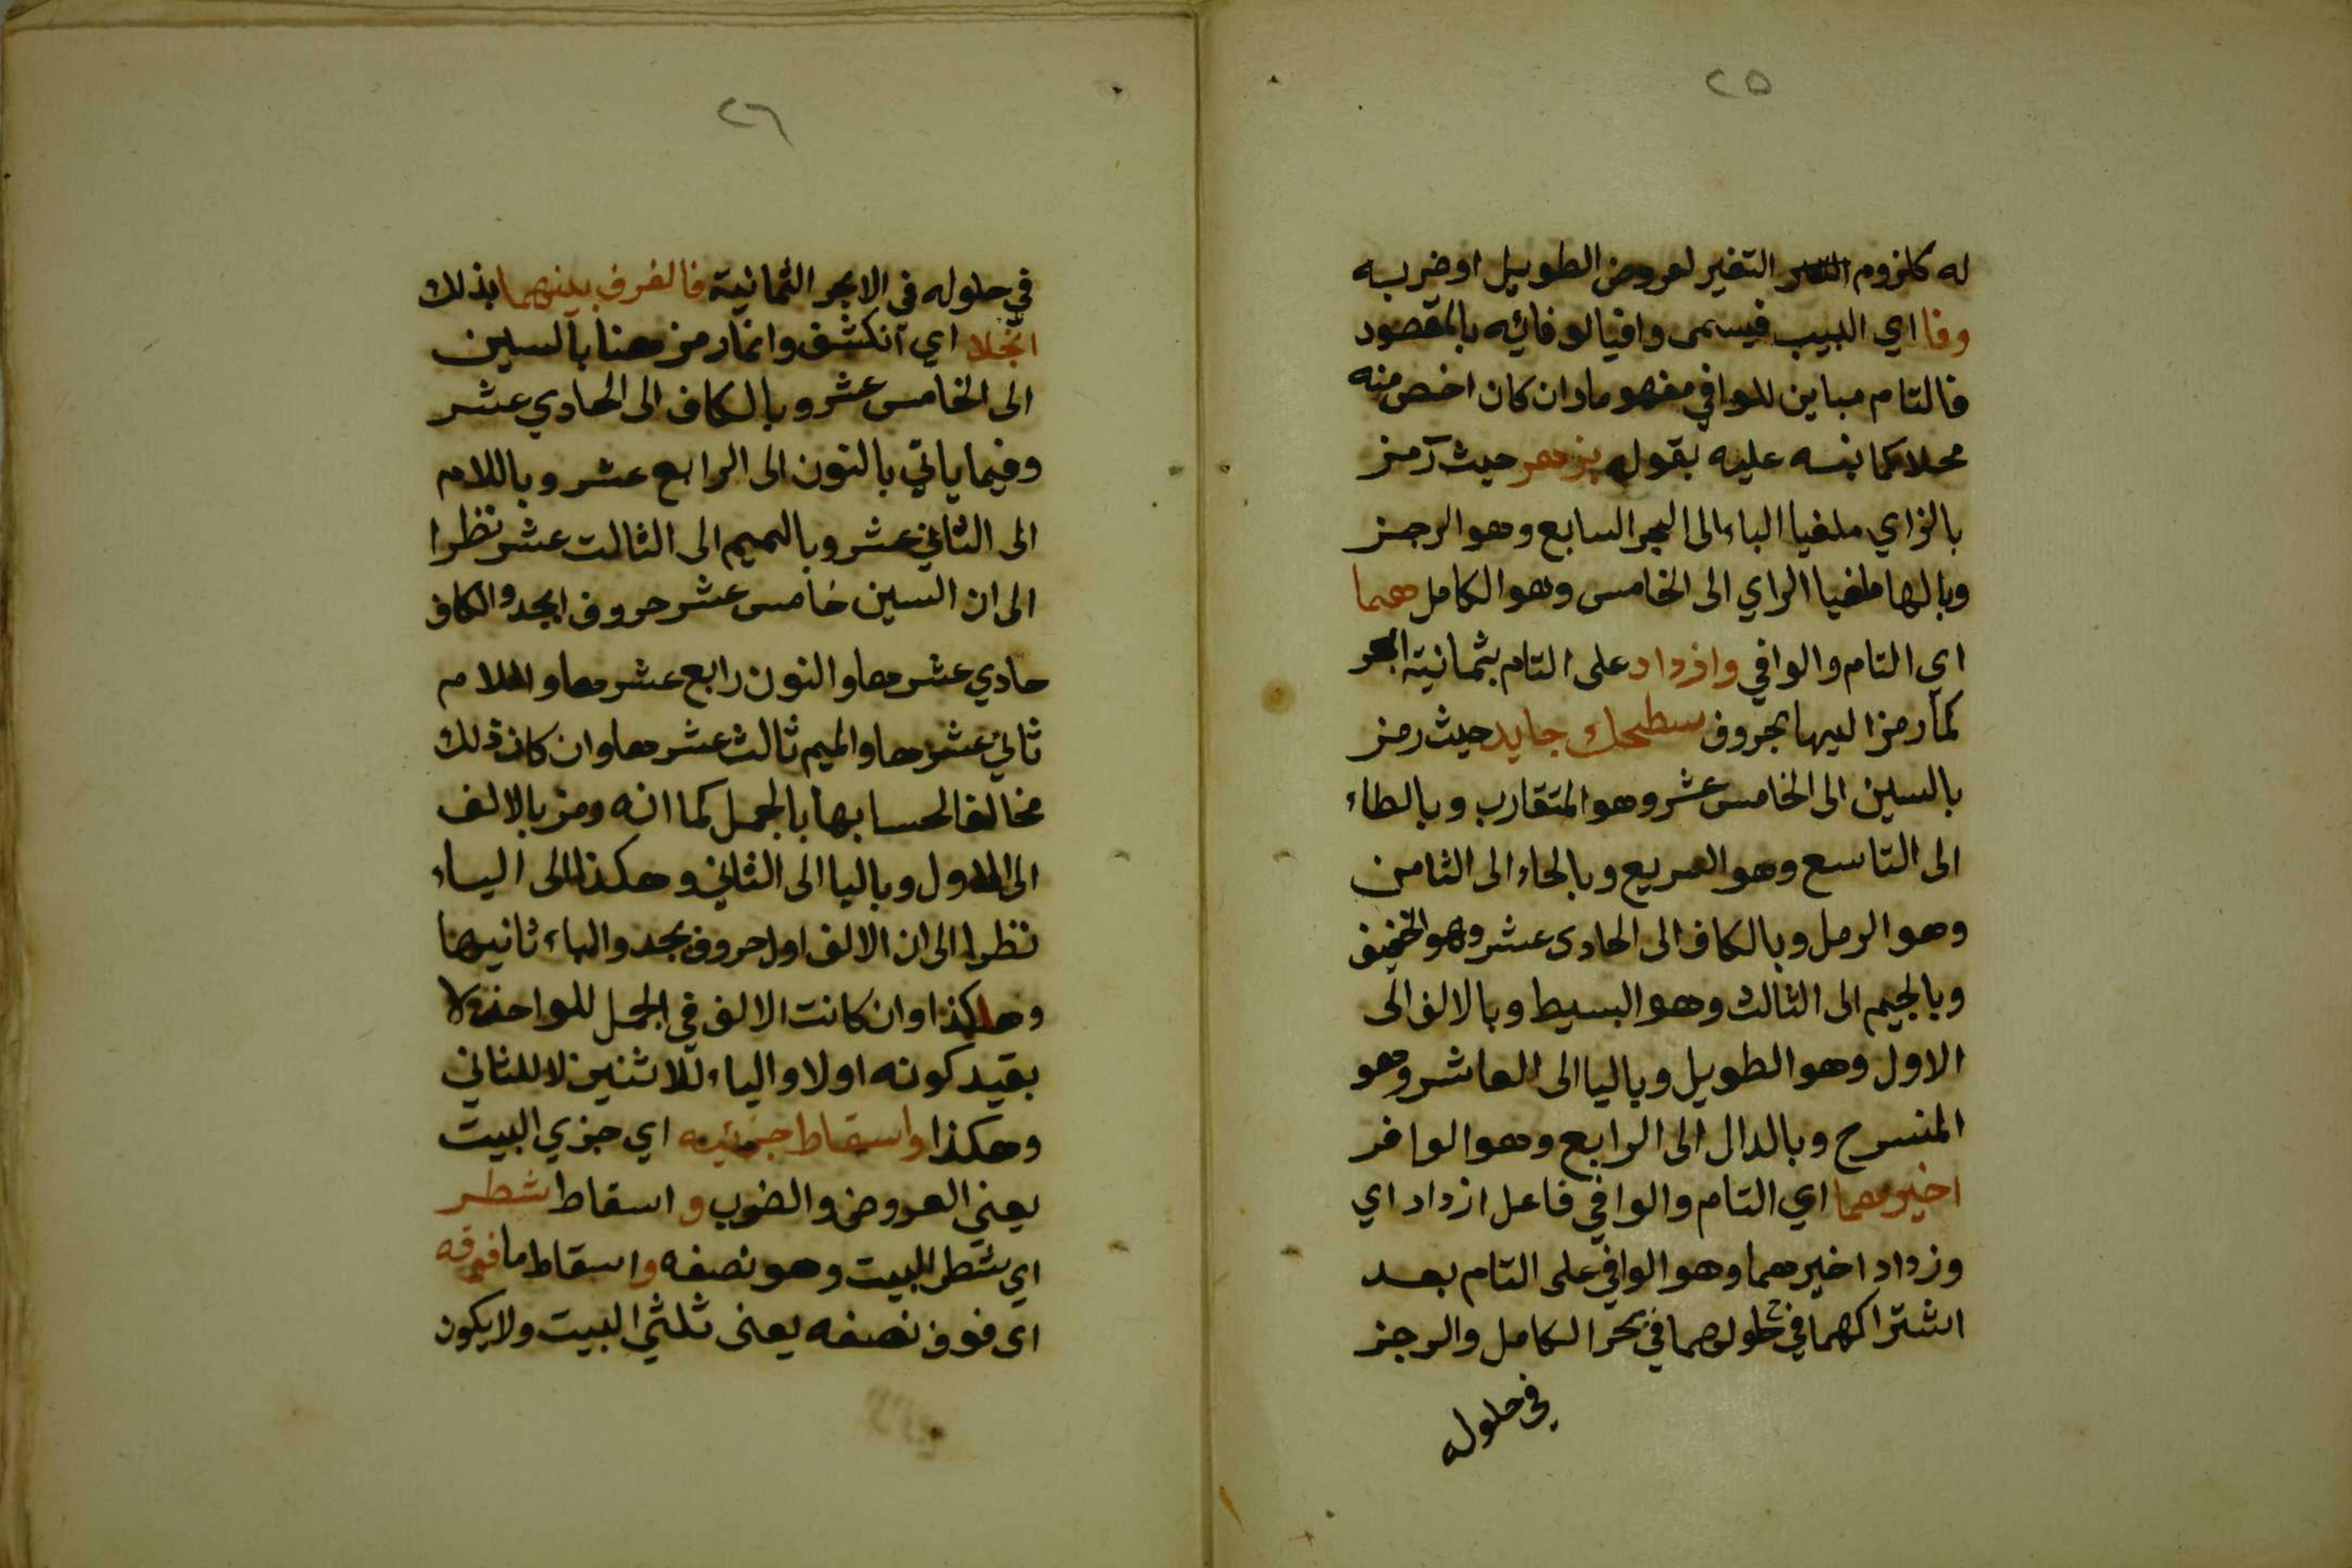 ٢٥
له كلزوم التغير لعروض الطويل او ضربه
وفا اي البيب فيسمى وافيا لوفائه بالمقصود
فالتام مباين للوافي مفهوما وان كان اخص منه
محلا كما بنسه عليه بقوله بزهر حيث رمز
بالزاي ملغيا الباء الى البحر السابع وهو الرجز
وبالها ملغيا الزاي الى الخامس وهو الكامل هما
اي التام والوافي وازداد على التام بثمانية ابحر
كما رمز اليها بحروف سطحك جايد حيث رمز
بالسين الى الخامس عشر وهو المتقارب وبالطاء
الى التاسع وهو السريع وبالحاء الى الثامن
وهو الرمل وبالكاف الى الحادى عشر وهو الخفيف
وبالجيم الى الثالث وهو البسيط وبالالف الى
الاول وهو الطويل وباليا الى العاشر وهو
المنسرح وبالدال الى الرابع وهو الوافر
اخيرهما اي التام والوافي فاعل ازداد اي
وزداد اخيرهما وهو الوافي على التام بعد
اشتراكهما في حلولهما في بحر الكامل والرجز
في حلوله
٢٦
في حلوله فى الابحر الثمانية فالفرف بينهما بذلك
انجلا اي انكشف وانما رمز هنا بالسين
الى الخامس عشر وبالكاف الى الحادي عشر
وفيما ياتي بالنون الى الرابع عشر وباللام
الى الثاني عشر وبالميم الى الثالت عشر نظرا
الى ان السين خامس عشر حروف ابجد والكاف
حادي عشرها والنون رابع عشرها واللام
ثاني عشرها والميم ثالث عشرها وان كان ذلك
مخالفا لحسابها بالجمل كما انه رمز بالالف
الى الاول وباليا الى الثاني وهكذا الى الياء
نظرا الى ان الالف اول حروف بجد والباء ثانيها
وهاكذا وان كانت الالف في الجمل للواحد لا
بقيد كونه اولا والياء للاثنين لا للثاني
وهكذا واسقاط جزئيه اي جزي البيت
يعني العروض والضرب و اسقاط شطر
اي شطر البيت وهو نصفه واسقاط ما فوقه
اى فوق نصفه يعنى ثلثي البيت ولا يكون